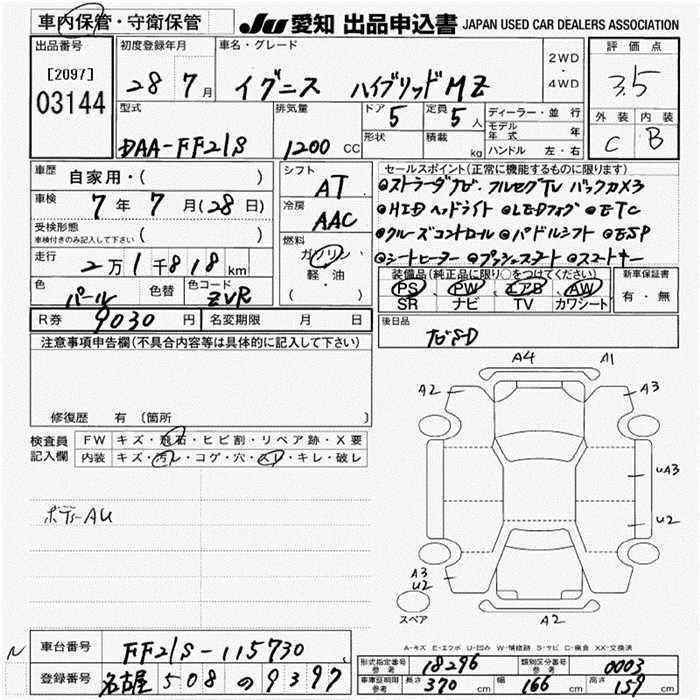 車内保管・守衛保管
JU 愛知 出品申込書 JAPAN USED CAR DEALERS ASSOCIATION
出品番号
[2097]
03144
初度登録年月
28 7月
車名・グレード
イグニス ハイブリッドMZ
2WD
・
4WD
評価点
3.5
外装 内装
C B
型式
DAA-FF21S
排気量
1200 CC
ドア
5
定員
5人
形状
積載
kg
ディーラー・並行
モデル年式 年
ハンドル 左・右
車歴
自家用・( )
車検
7年7月(28日)
受検形態
車検付きのみ記入して下さい ( )
走行
2万1千818km
色
パール
色替
色コード
ZVR
シフト
AT
冷房
AAC
燃料
ガソリン
軽・油
( )
セールスポイント(正常に機能するものに限ります)
◎ストラーダナビ、フルセグTV バックカメラ
◎HID ヘッドライト ◎LEDフォグ ◎ETC
◎クルーズコントロール ◎パドルシフト ◎ESP
◎シートヒーター ◎プッシュスタート ◎スマートキー
装備品(純正品に限り○をつけてください)
PS PW エアB AW
SR ナビ TV カワシート
新車保証書
有・無
R券 9030円
名変期限 月 日
後日品
ナビSD
注意事項申告欄(不具合内容等は具体的に記入して下さい)
修復歴 有 〔箇所 〕
検査員
記入欄
FW キズ・飛石・ヒビ割・リペア跡・X要
内装 キズ・汚レ・コゲ・穴・スレ・キレ・破レ
ボデーAU
A4 A1
A2 A3
UA3
U2
A3
U2
A2
スペア
A-キズ E-エクボ U-凹み W-補修跡 S-サビ C-腐食 XX-交換済
N
車台番号 FF21S-115730
登録番号 名古屋 508 の 9397
形式指定番号
参考
18296
類別区分番号
参考
0003
車庫証明用
参考
長さ 370cm 幅 166cm 高さ 159cm